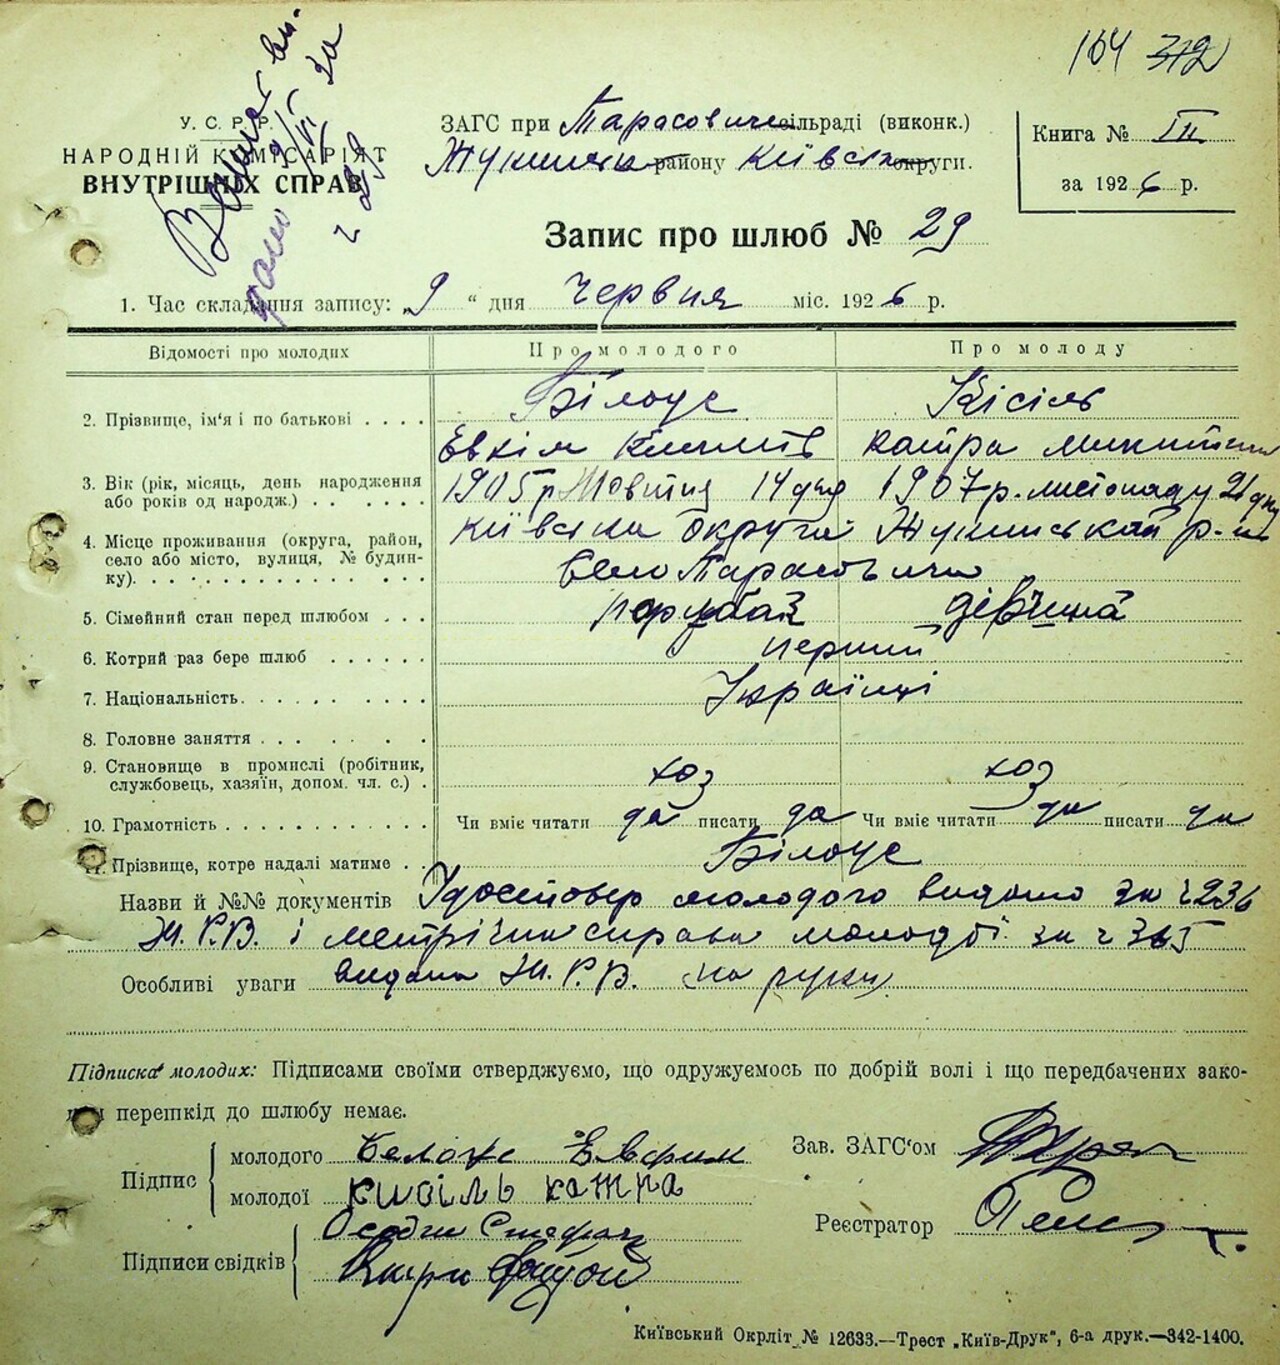 104 312
У. С. Р. Р.
НАРОДНІЙ КОМІСАРІЯТ
ВНУТРІШНІХ СПРАВ
ЗАГС при Тарасовичс сільраді (виконк.)
району Київськ округи.
Книга № III
за 1926 р.
Запис про шлюб № 29
1. Час складання запису: „9 “ дня Червня міс. 1926 р.
Відомості про молодих
Про молодого
Про молоду
2. Прізвище, ім'я і по батькові . . . .
Білоус
Кісіль
Евкім Климів
Катра
3. Вік (рік, місяць, день народження
або років од народж.) . . . . . .
1905 р Жовтня 14 дня
1907 р. листопаду 21 дня
4. Місце проживання (округа, район,
село або місто, вулиця, № будин-
ку). . . . . . . . . . . . . . .
Київська округа
р-н
село Тарасовичи
5. Сімейний стан перед шлюбом . . .
парубок
дівчина
6. Котрий раз бере шлюб . . . . . .
перший
7. Національність. . . . . . . . . .
Українці
8. Головне заняття . . . . . . .
9. Становище в промислі (робітник,
службовець, хазяїн, допом. чл. с.) .
хоз
хоз
10. Грамотність . . . . . . . . . . .
Чи вміє читати да писати да
Чи вміє читати да писати да
11. Прізвище, котре надалі матиме . .
Білоус
Назви й №№ документів Удостовер молодого видано за ч 236
Ж. Р.В. і метрична справа молодої за ч 365
Особливі уваги видана Ж. Р. В. на руки
Підписка молодих: Підписами своїми стверджуємо, що одружуємось по добрій волі і що передбачених зако-
ном перешкід до шлюбу немає.
Підпис
молодого Белоус Евфим
молодої кисіль катра
Зав. ЗАГС'ом
Реєстратор
Підписи свідків
Київський Окрліт № 12633.—Трест „Київ-Друк“, 6-а друк.—342-1400.